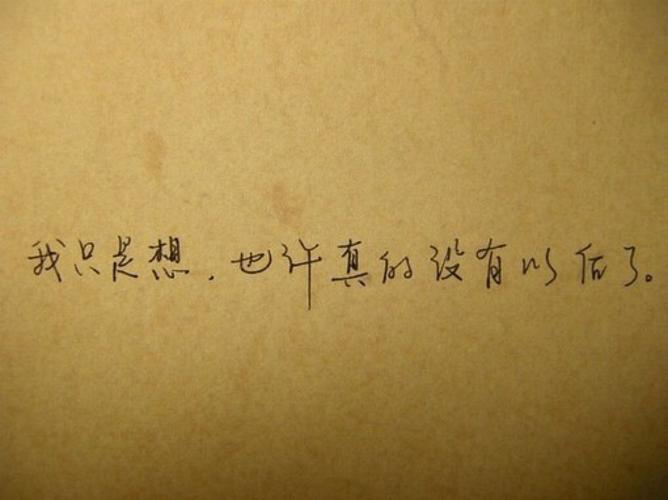 我只是想，也许真的没有以后了。